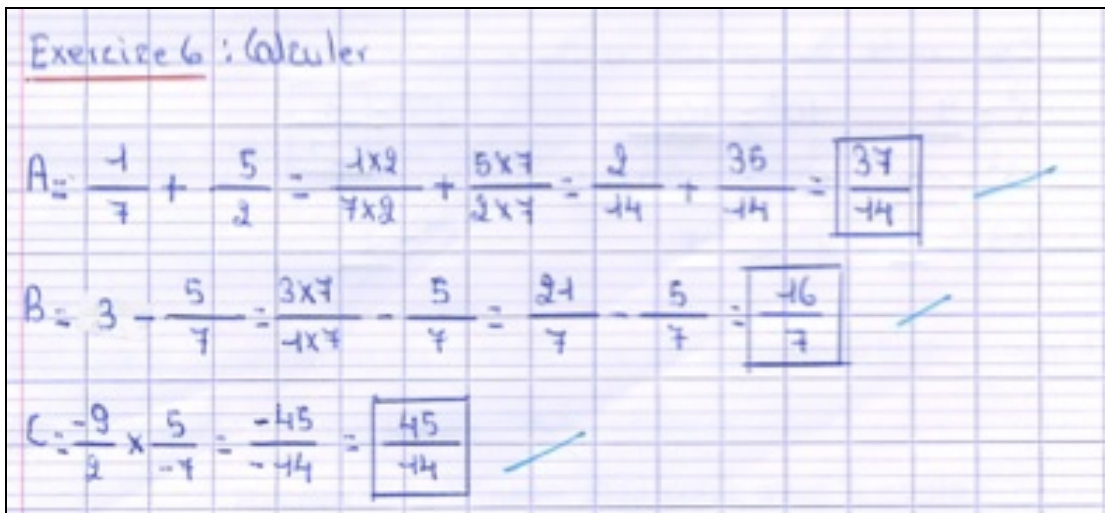 Exercice 6 : Calculer
A = 1/7 + 5/2 = 1x2/7x2 + 5x7/2x7 = 2/14 + 35/14 = 37/14
B = 3 - 5/7 = 3x7/1x7 - 5/7 = 21/7 - 5/7 = 16/7
C = -9/2 x 5/-7 = -45/-14 = 45/14